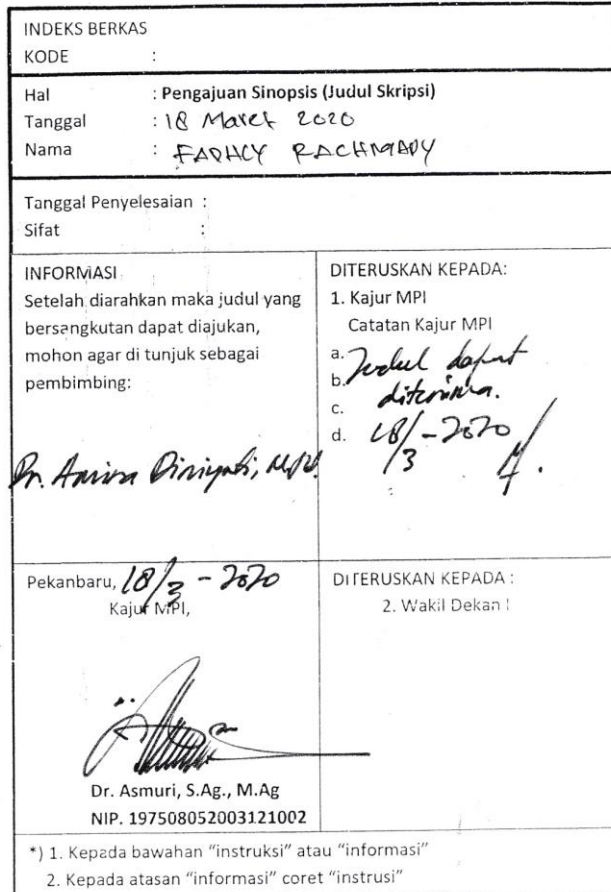 INDEKS BERKAS
KODE :
Hal : Pengajuan Sinopsis (Judul Skripsi)
Tanggal : 18 Maret 2020
Nama : FADHLY RACHMADY
Tanggal Penyelesaian :
Sifat :
INFORMASI
Setelah diarahkan maka judul yang
bersangkutan dapat diajukan,
mohon agar di tunjuk sebagai
pembimbing:
Dr.
DITERUSKAN KEPADA:
1. Kajur MPI
Catatan Kajur MPI
a. Judul dapat
b. diterima.
c.
d. 18/3-2020
Pekanbaru, 18/3 - 2020
Kajur MPI,
Dr. Asmuri, S.Ag., M.Ag
NIP. 197508052003121002
DITERUSKAN KEPADA :
2. Wakil Dekan I
*) 1. Kepada bawahan "instruksi" atau "informasi"
2. Kepada atasan "informasi" coret "instrusi"